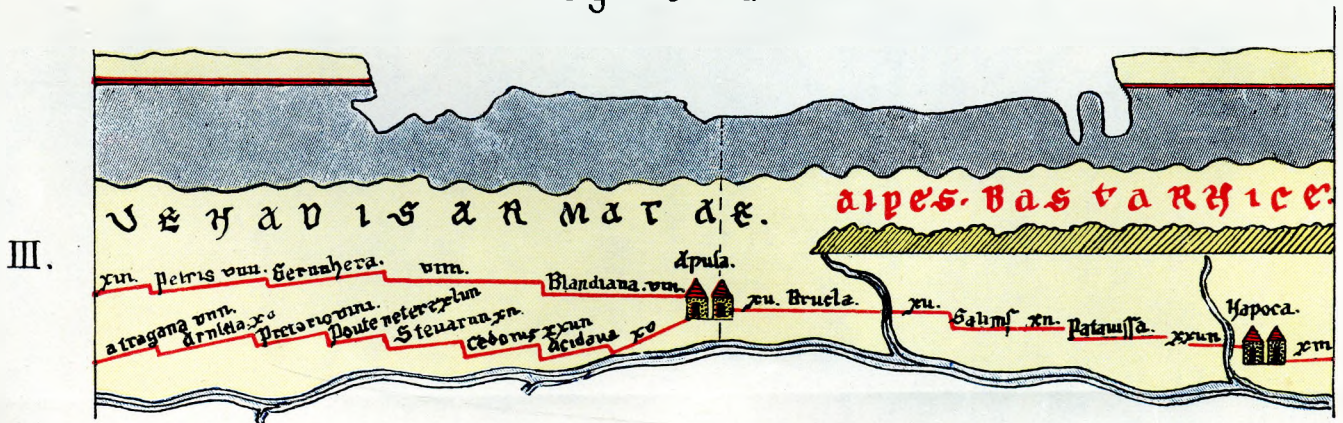 VENADISARMATAE.
AlPES. BASTARNICE.
III.
xiii. Petris viiii. Germahera. viiii. Blandiana. viii. Apula. xii. Brucla. xii. Salinis xii. Patauissa. xxiiii Napoca. xiii
atragana viiii. Arutela. xv Pretorio viiii. Ponte vetere xliiii Stenarum xii. Cedonie xxiiii Acidava xv